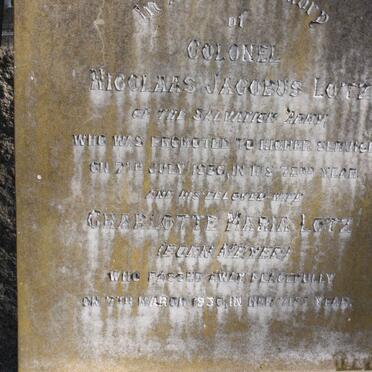 In Loving Memory
of
COLONEL
NICOLAAS JACOBUS LOTZ
OF THE SALVATION ARMY
WHO WAS PROMOTED TO HIGHER SERVICE
ON 7TH JULY IN HIS YEAR,
AND HIS BELOVED WIFE
CHARLOTTE MARIA LOTZ
(BORN MEYER)
WHO PASSED AWAY PEACEFULLY
ON 7TH MARCH IN HER 71ST YEAR.